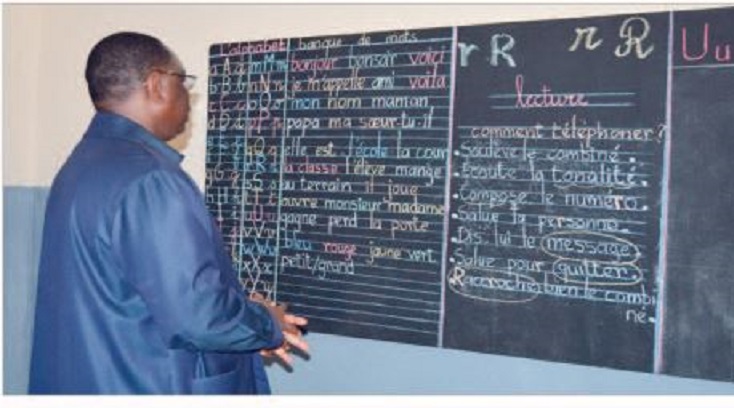 L'alphabet banque de mots
a A a m M m bonjour bonsoir voici
b B b n N n je m'appelle ami voilà
mon nom maman
papa ma sœur-tu-il
elle est l'école la cour
la classe l'élève mange
au terrain il joue
ouvre monsieur madame
gagne perd la porte
bleu rouge jaune vert
petit/grand
r R r R
lecture
comment téléphoner?
.Soulève le combiné.
.Ecoute la tonalité.
.Compose le numéro.
.Salue la personne.
.Dis lui le message.
.Salue pour quitter.
Raccroche bien le combi
né.
U u